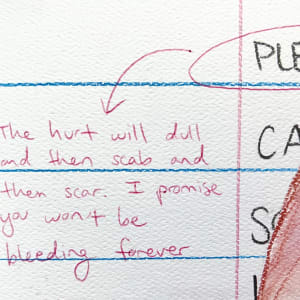 PLE
The hurt will dull
and then scab and
then scar. I promise
you won't be
bleeding forever
CA